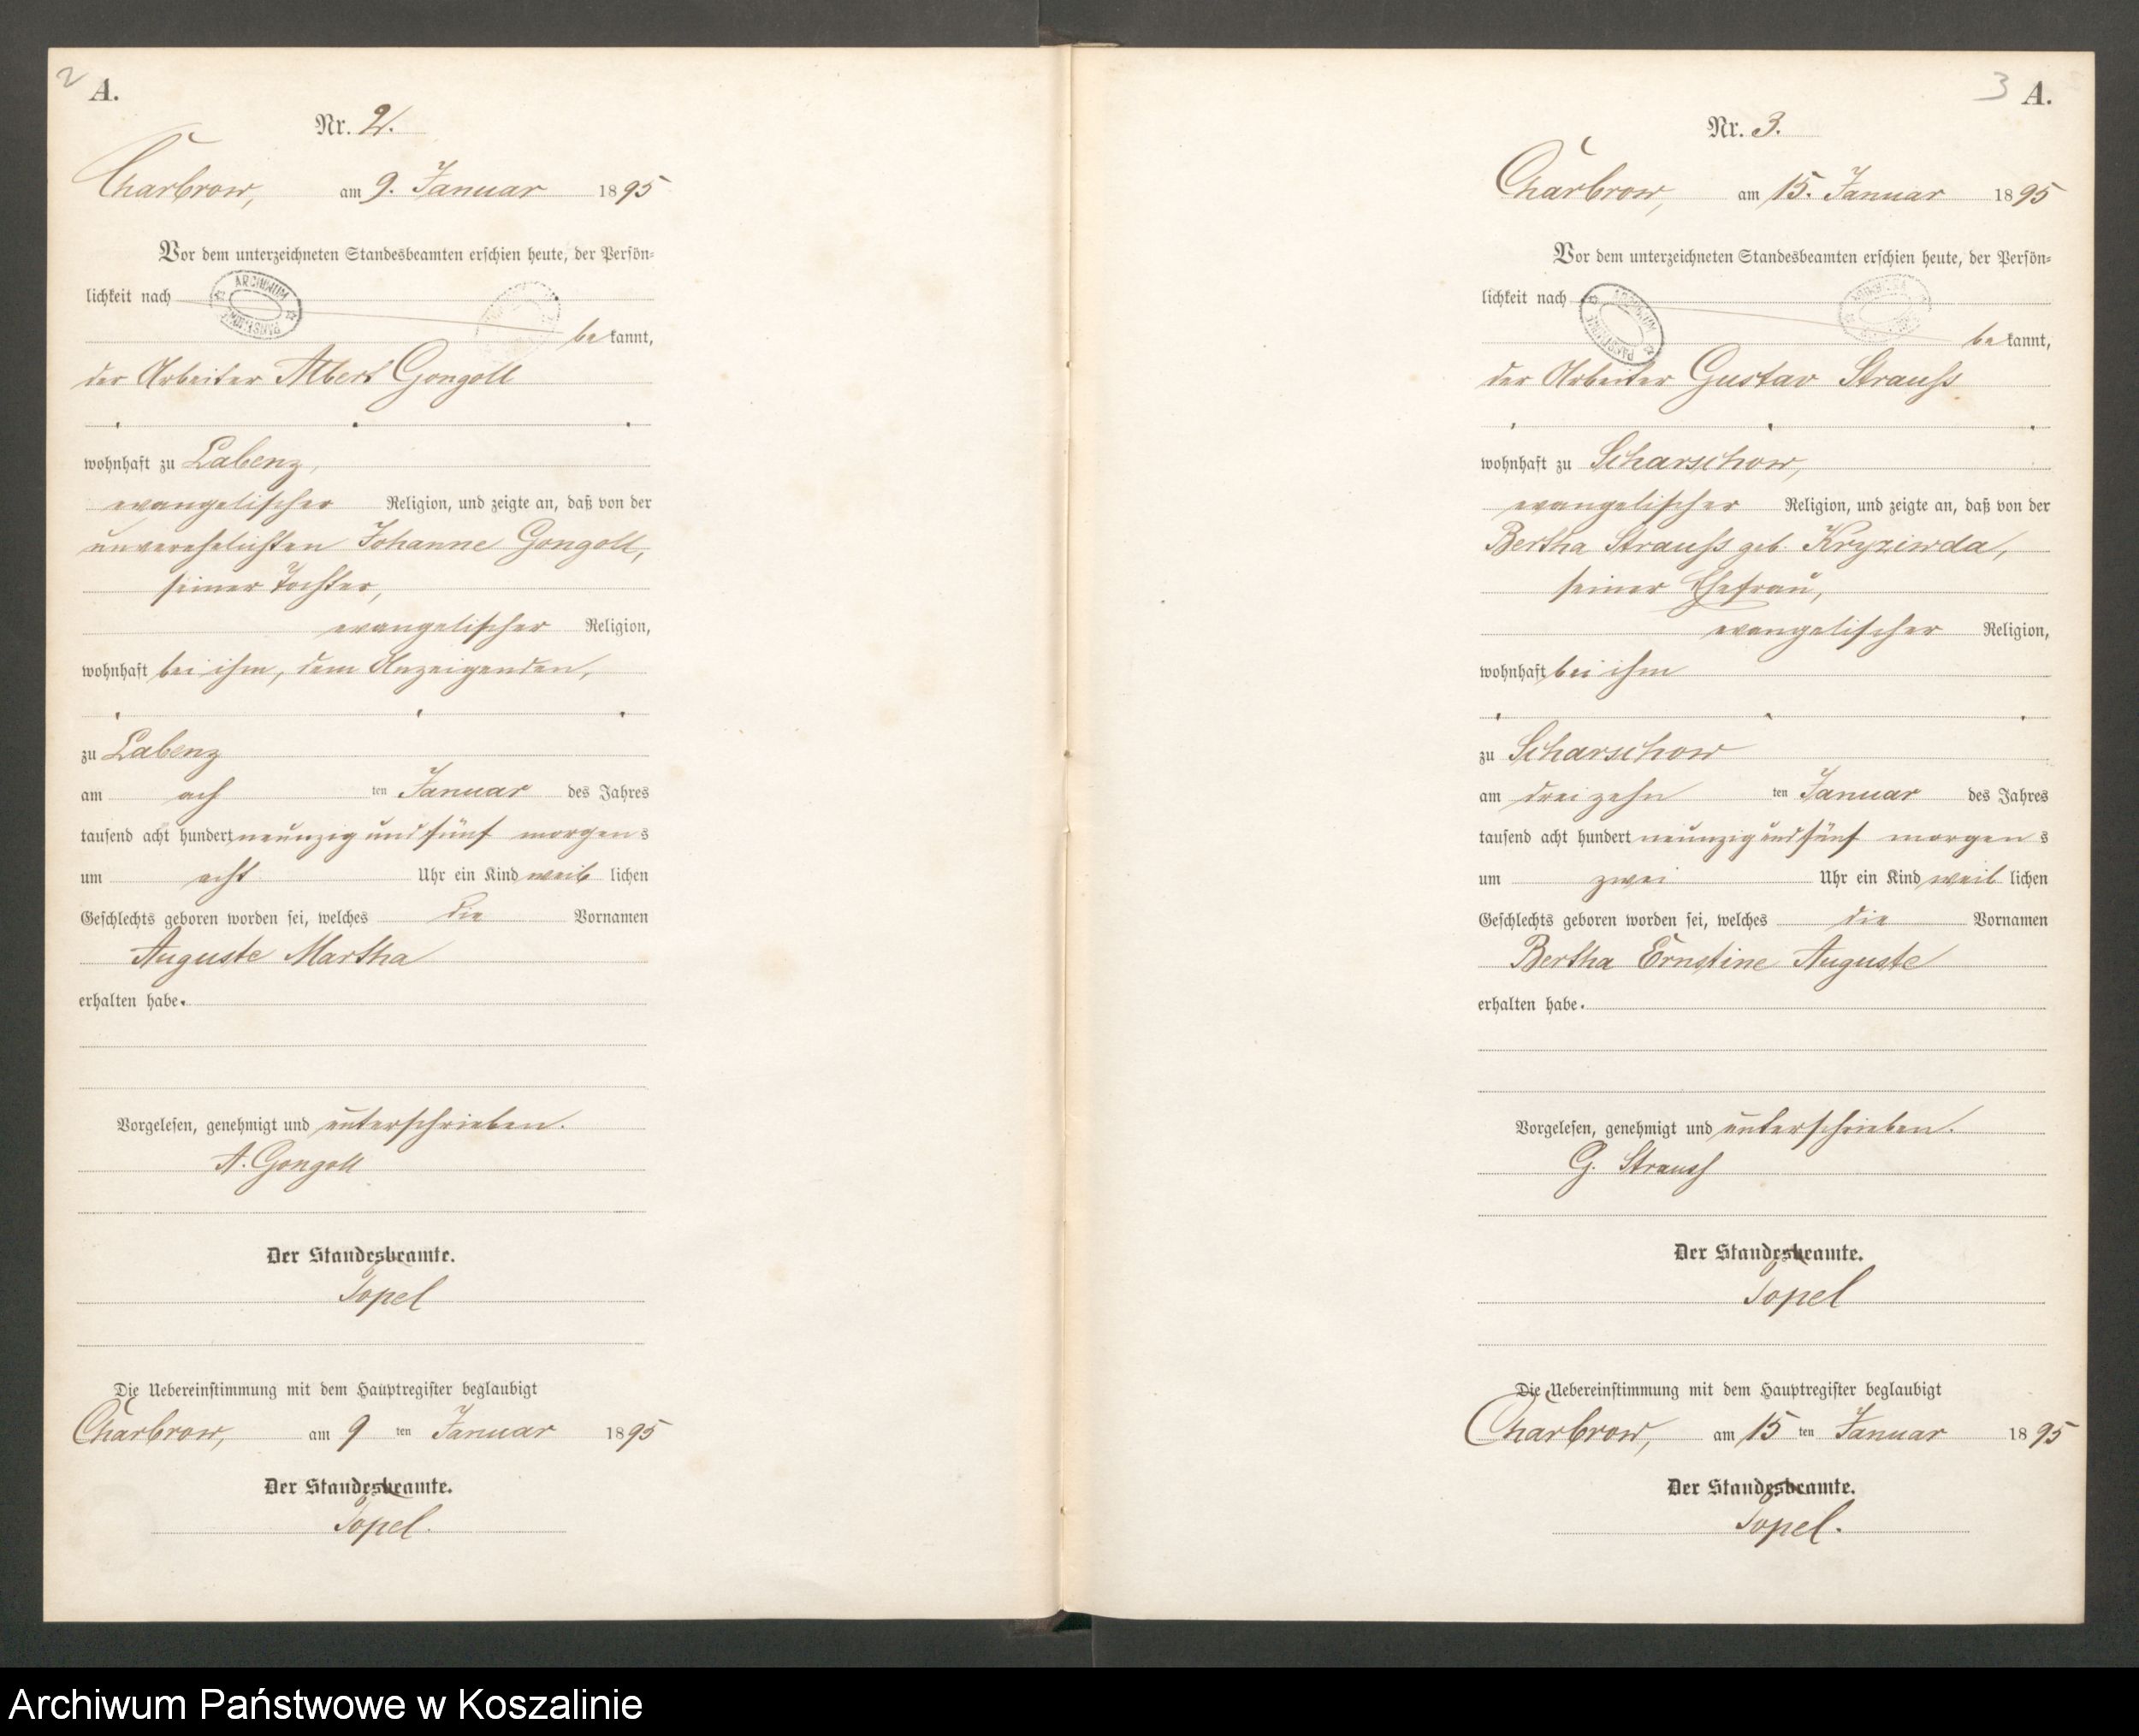 2
A.
Nr. 2.
Charbrow, am 9. Januar 1895
Vor dem unterzeichneten Standesbeamten erschien heute, der Persön-
lichkeit nach
ARCHIWUM
PAŃSTWOWE
bekannt,
der Arbeiter Albert Gongoll
wohnhaft zu Labenz,
evangelischer Religion, und zeigte an, daß von der
unverehelichten Johanne Gongoll,
seiner Tochter,
evangelischer Religion,
wohnhaft bei ihm, dem Anzeigenden,
zu Labenz
am ach ten Januar des Jahres
tausend acht hundert neunzig und fünf morgens
um acht Uhr ein Kind weiblichen
Geschlechts geboren worden sei, welches die Vornamen
Auguste Martha
erhalten habe.
Vorgelesen, genehmigt und unterschrieben.
A. Gongoll
Der Standesbeamte.
Topel
Die Uebereinstimmung mit dem Hauptregister beglaubigt
Charbrow, am 9 ten Januar 1895
Der Standesbeamte.
Topel.
3
A.
Nr. 3.
Charbrow, am 15. Januar 1895
Vor dem unterzeichneten Standesbeamten erschien heute, der Persön-
lichkeit nach
ARCHIWUM
PAŃSTWOWE
bekannt,
der Arbeiter Gustav Strauß
wohnhaft zu Scharschow,
evangelischer Religion, und zeigte an, daß von der
Bertha Strauß geb. Kryziwda,
seiner Ehefrau,
evangelischer Religion,
wohnhaft bei ihm
zu Scharschow
am dreizehn ten Januar des Jahres
tausend acht hundert neunzig und fünf morgens
um zwei Uhr ein Kind weiblichen
Geschlechts geboren worden sei, welches die Vornamen
Bertha Ernstine Auguste
erhalten habe.
Vorgelesen, genehmigt und unterschrieben.
G. Strauß
Der Standesbeamte.
Topel
Die Uebereinstimmung mit dem Hauptregister beglaubigt
Charbrow, am 15 ten Januar 1895
Der Standesbeamte.
Topel.
Archiwum Państwowe w Koszalinie